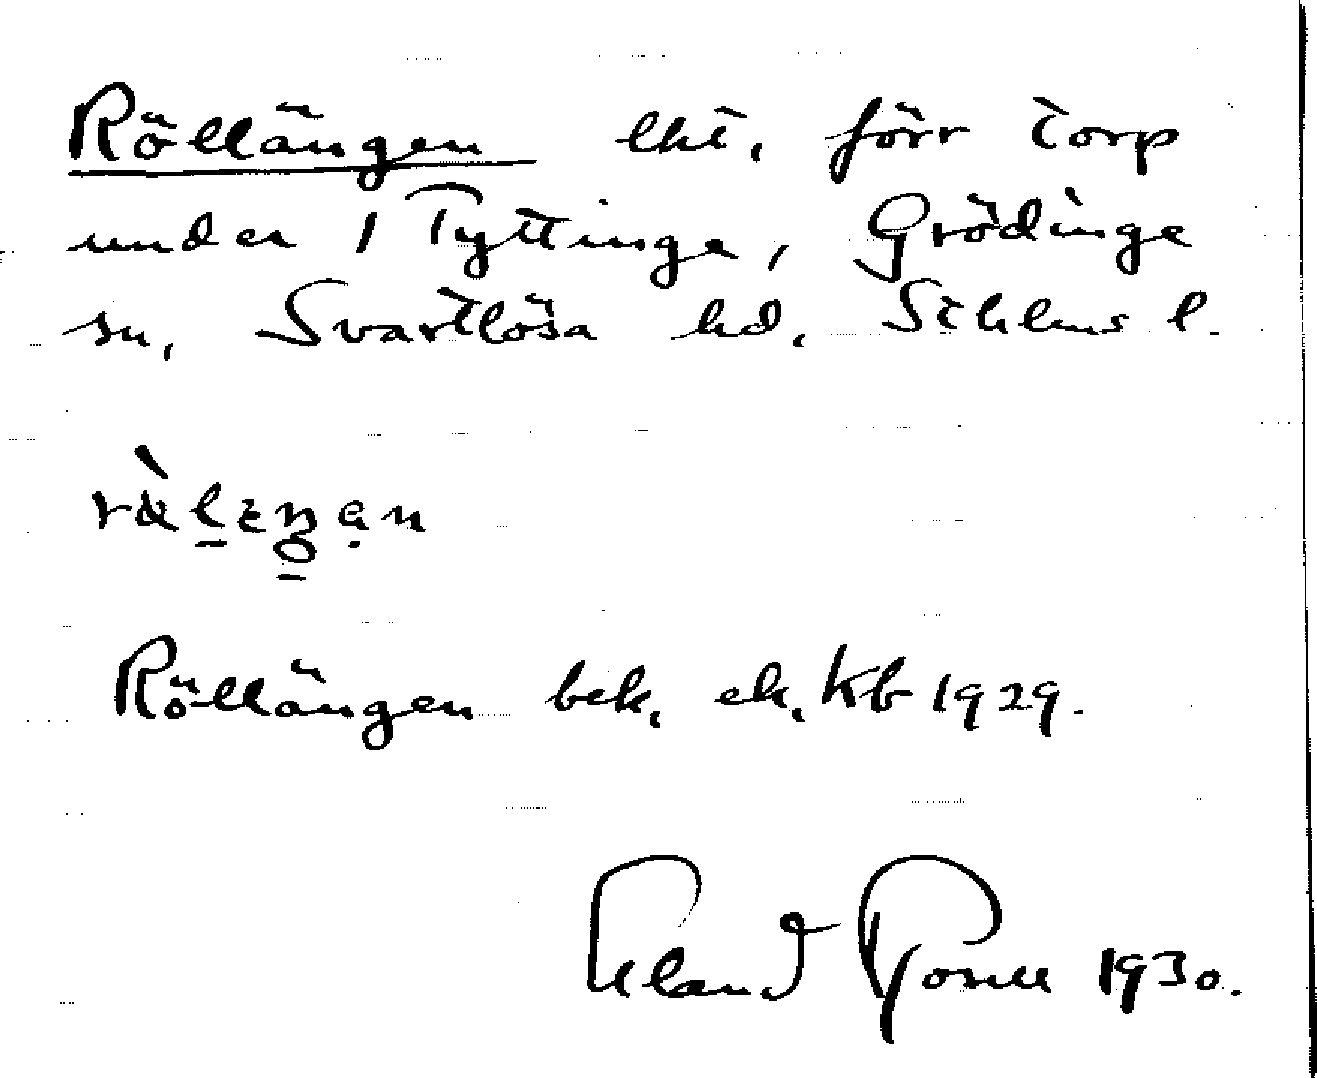 Röllängen lht, förr torp
under 1 Tyttinge, Grödinge
sn, Svartlösa hd. Sthlms l.
Röllängen bek. ek. Kb 1929.
1930.